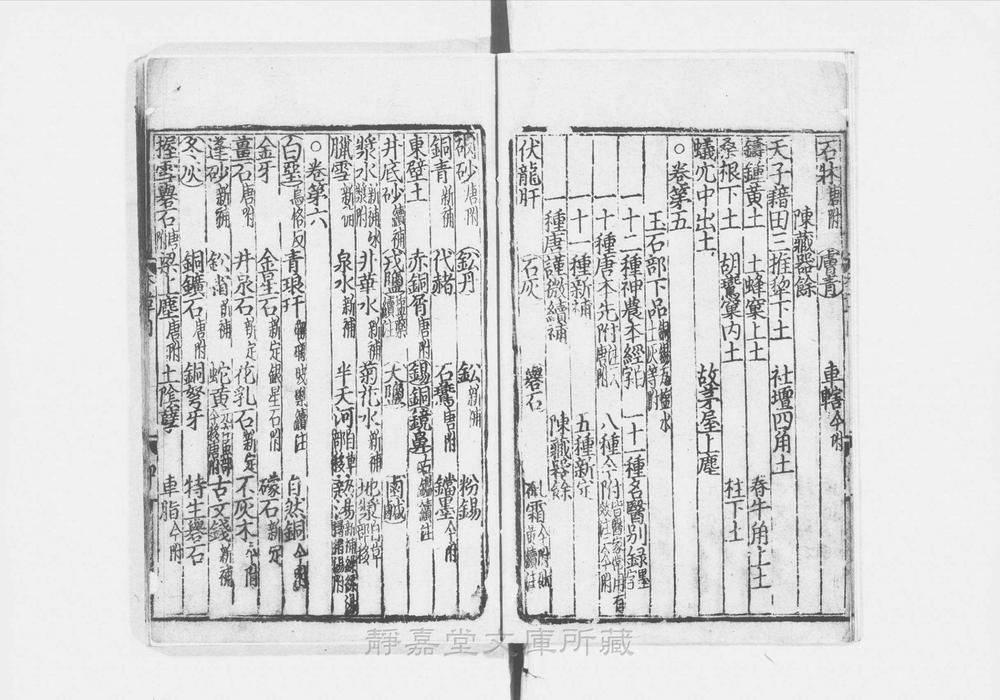 石牀唐附 膚青 車轄今附
陳藏器餘
天子藉田三推犂下土 社壇四角土
鑄鍾黃土 土蜂窠上土 春牛角上土
桑根下土 胡鷰窠內土 柱下土
蟻穴中出土 故茅屋上塵
○卷第五
玉石部下品
一十二種神農本經白字 一十一種名醫別錄墨字
一十種唐本先附注云唐附 八種今附
一十一種新補 五種新定
一種唐謹微續補 陳藏器餘
伏龍肝 石灰 礜石 霜
砂唐附 鈆丹 鈆新補 粉錫
銅青新補 代赭 石鷰唐附 鐺墨今附
東壁土 赤銅屑唐附 錫銅鏡鼻 續注
井底砂續補 戎鹽 大鹽 鹵鹹
漿水新補 井華水新補 菊花水新補 地漿
臘雪新補 泉水新補 半天河
○卷第六
白堊烏恪反 青琅玕 自然銅今附
金牙 金星石新定銀星石附 礞石新定
薑石唐附 井泉石新定 花乳石新定 不灰木今附
蓬砂新補 蛇黃 古文錢新補
冬灰 銅鑛石唐附 銅弩牙 特生礜石
握雪礜石唐附 梁上塵唐附 土陰孽 車脂今附
靜嘉堂文庫所藏